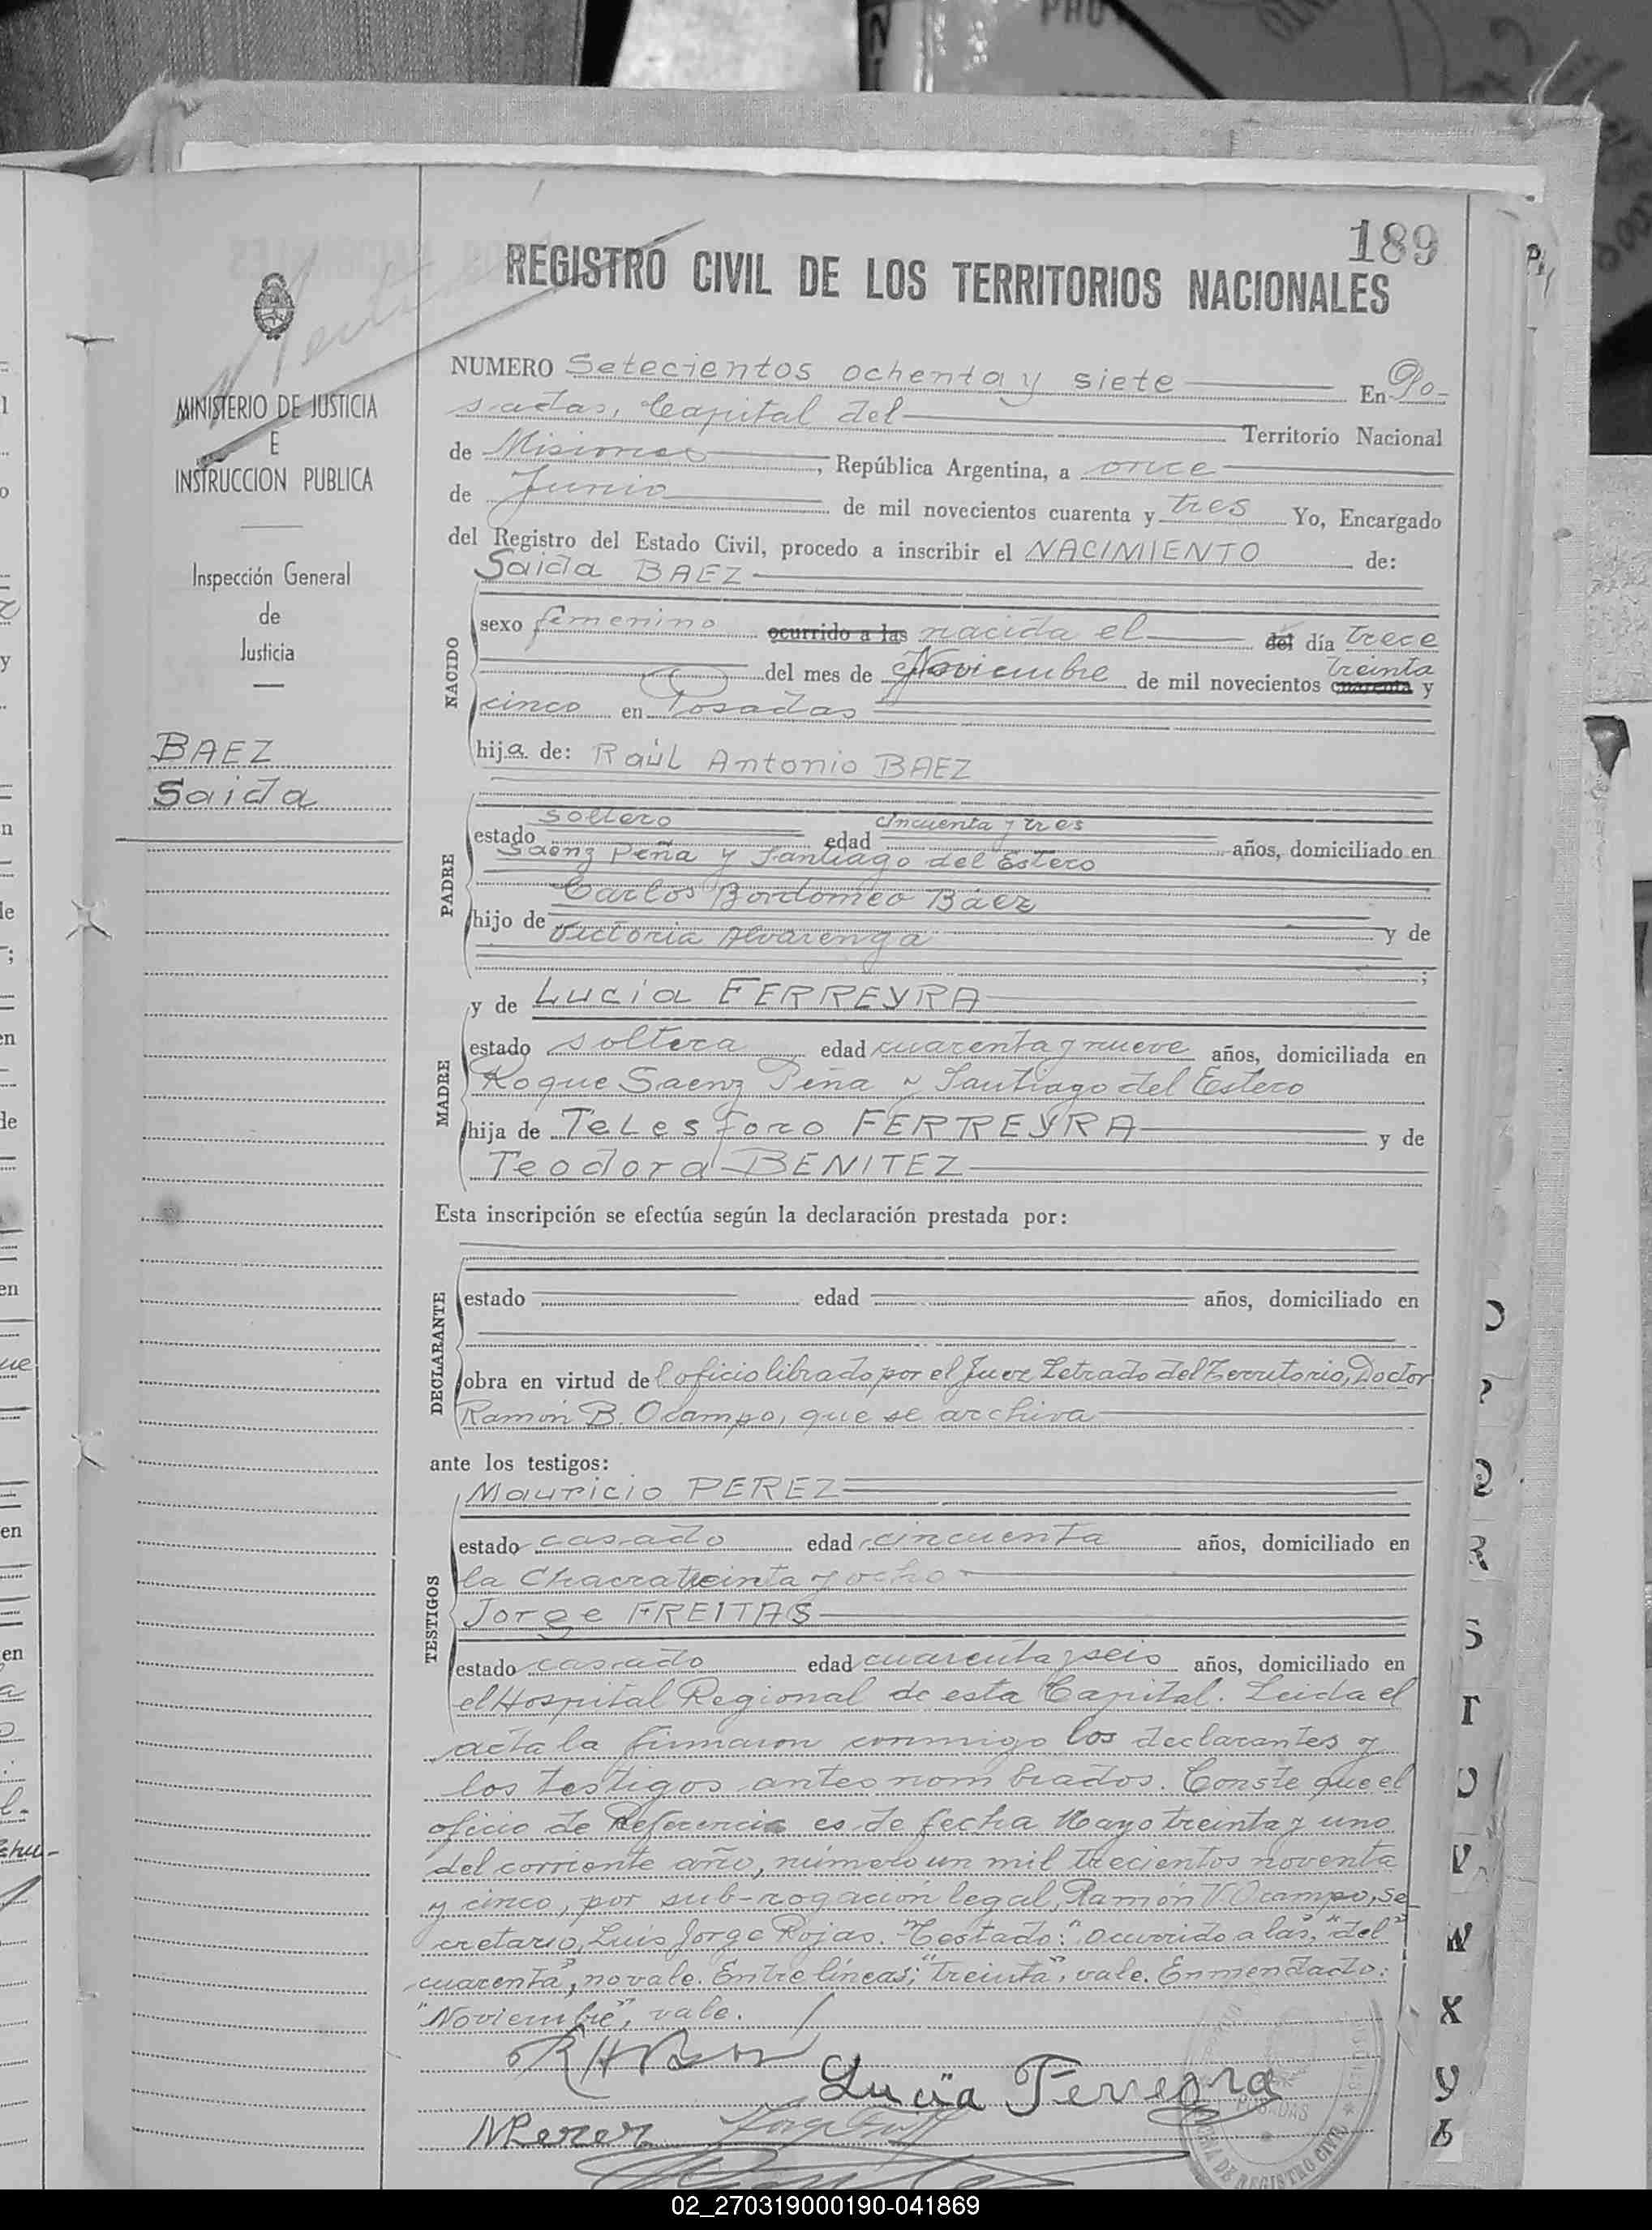 189
REGISTRO CIVIL DE LOS TERRITORIOS NACIONALES
MINISTERIO DE JUSTICIA
E
INSTRUCCION PUBLICA
Inspección General
de
Justicia
BAEZ
Saida
NUMERO Setecientos ochenta y siete En Po-
sadas, Capital del Territorio Nacional
de Misiones, República Argentina, a once
de Junio de mil novecientos cuarenta y tres Yo, Encargado
del Registro del Estado Civil, procedo a inscribir el NACIMIENTO de:
Saida BAEZ
NACIDO
sexo femenino ocurrido a las nacida el del día trece
treinta
del mes de Noviembre de mil novecientos cuarenta y
cinco en Posadas
hija de: Raúl Antonio BAEZ
PADRE
estado soltero edad cincuenta y tres años, domiciliado en
Saenz Peña y Santiago del Estero
Carlos Bordomeo Báez
hijo de y de
Victoria Alvarenga ;
y de Lucia FERREYRA
MADRE
estado soltera edad cuarenta y nueve años, domiciliada en
Roque Saenz Peña y Santiago del Estero
hija de Telesforo FERREYRA y de
Teodora BENITEZ
Esta inscripción se efectúa según la declaración prestada por:
DECLARANTE
estado edad años, domiciliado en
obra en virtud del oficio librado por el Juez Letrado del Territorio, Doctor
Ramón B. Ocampo, que se archiva
ante los testigos:
Mauricio PEREZ
TESTIGOS
estado casado edad cincuenta años, domiciliado en
la Chacra treinta y ocho
Jorge FREITAS
estado casado edad cuarenta y seis años, domiciliado en
el Hospital Regional de esta Capital. Leida el
acta la firmaron conmigo los declarantes y
los testigos antes nombrados. Conste que el
oficio de Referencia es de fecha Mayo treinta y uno
del corriente año, número un mil trecientos noventa
y cinco, por sub-rogación legal, Ramón V. Ocampo, Se
cretario, Luis Jorge Rojas. "Testado:" ocurrido a las", "del"
cuarenta", no vale. Entre líneas; "treinta", vale. Enmendado:
"Noviembre", vale.
Lucïa Ferreyra
MPerez
POSADAS
DE REGISTRO CIVIL
P
Q
R
S
T
U
V
W
X
Y
02_270319000190-041869